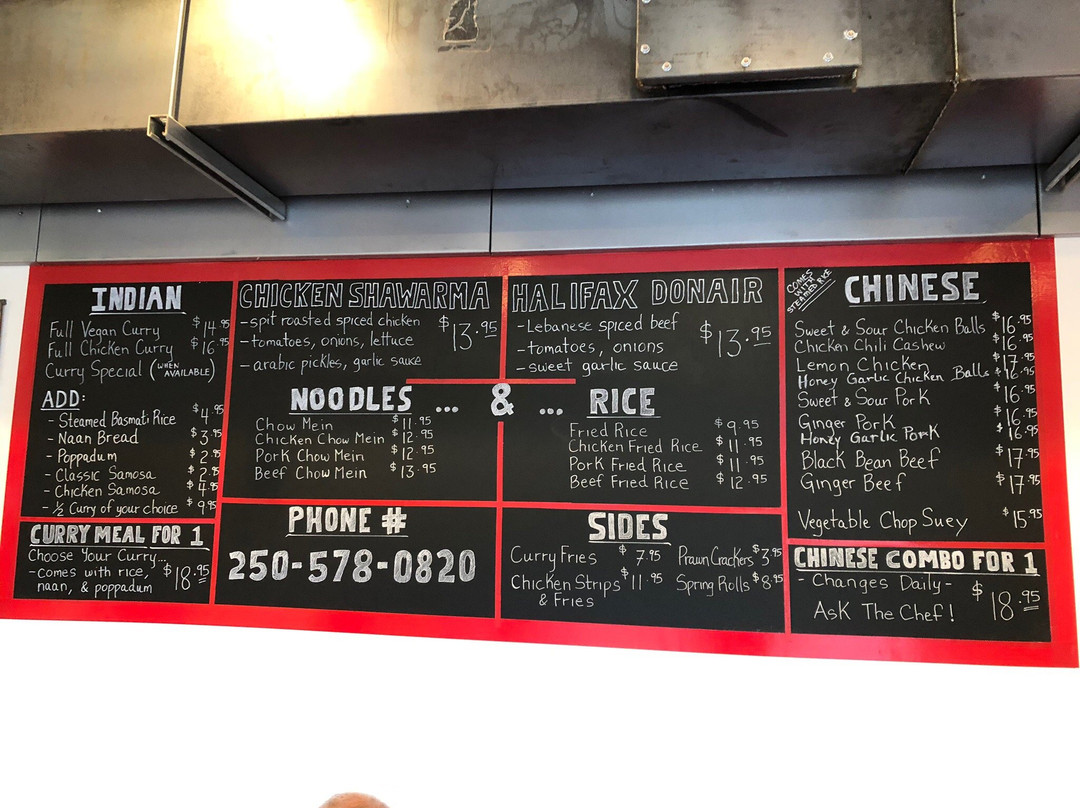 INDIAN
Full Vegan Curry $14.95
Full Chicken Curry $16.95
Curry Special (WHEN AVAILABLE)
ADD:
- Steamed Basmati Rice $4.95
- Naan Bread $3.95
- Poppadum $2.95
- Classic Samosa $2.95
- Chicken Samosa $4.95
- ½ Curry of your choice $9.95
CURRY MEAL FOR 1
Choose Your Curry...
- comes with rice, $18.95
naan, & poppadum
CHICKEN SHAWARMA
- spit roasted spiced chicken $13.95
- tomatoes, onions, lettuce
- arabic pickles, garlic sauce
HALIFAX DONAIR
- Lebanese spiced beef $13.95
- tomatoes, onions
- sweet garlic sauce
NOODLES ... & ... RICE
Chow Mein $11.95
Chicken Chow Mein $12.95
Pork Chow Mein $12.95
Beef Chow Mein $13.95
Fried Rice $9.95
Chicken Fried Rice $11.95
Pork Fried Rice $11.95
Beef Fried Rice $12.95
PHONE #
250-578-0820
SIDES
Curry Fries $7.95 Prawn Crackers $3.95
Chicken Strips $11.95 Spring Rolls $8.95
& Fries
COMES
WITH
STEAMED RICE
CHINESE
Sweet & Sour Chicken Balls $16.95
Chicken Chili Cashew $16.95
Lemon Chicken $17.95
Honey Garlic Chicken Balls $16.95
Sweet & Sour Pork $16.95
Ginger Pork $16.95
Honey Garlic Pork $16.95
Black Bean Beef $17.95
Ginger Beef $17.95
Vegetable Chop Suey $15.95
CHINESE COMBO FOR 1
- Changes Daily - $18.95
Ask The Chef!